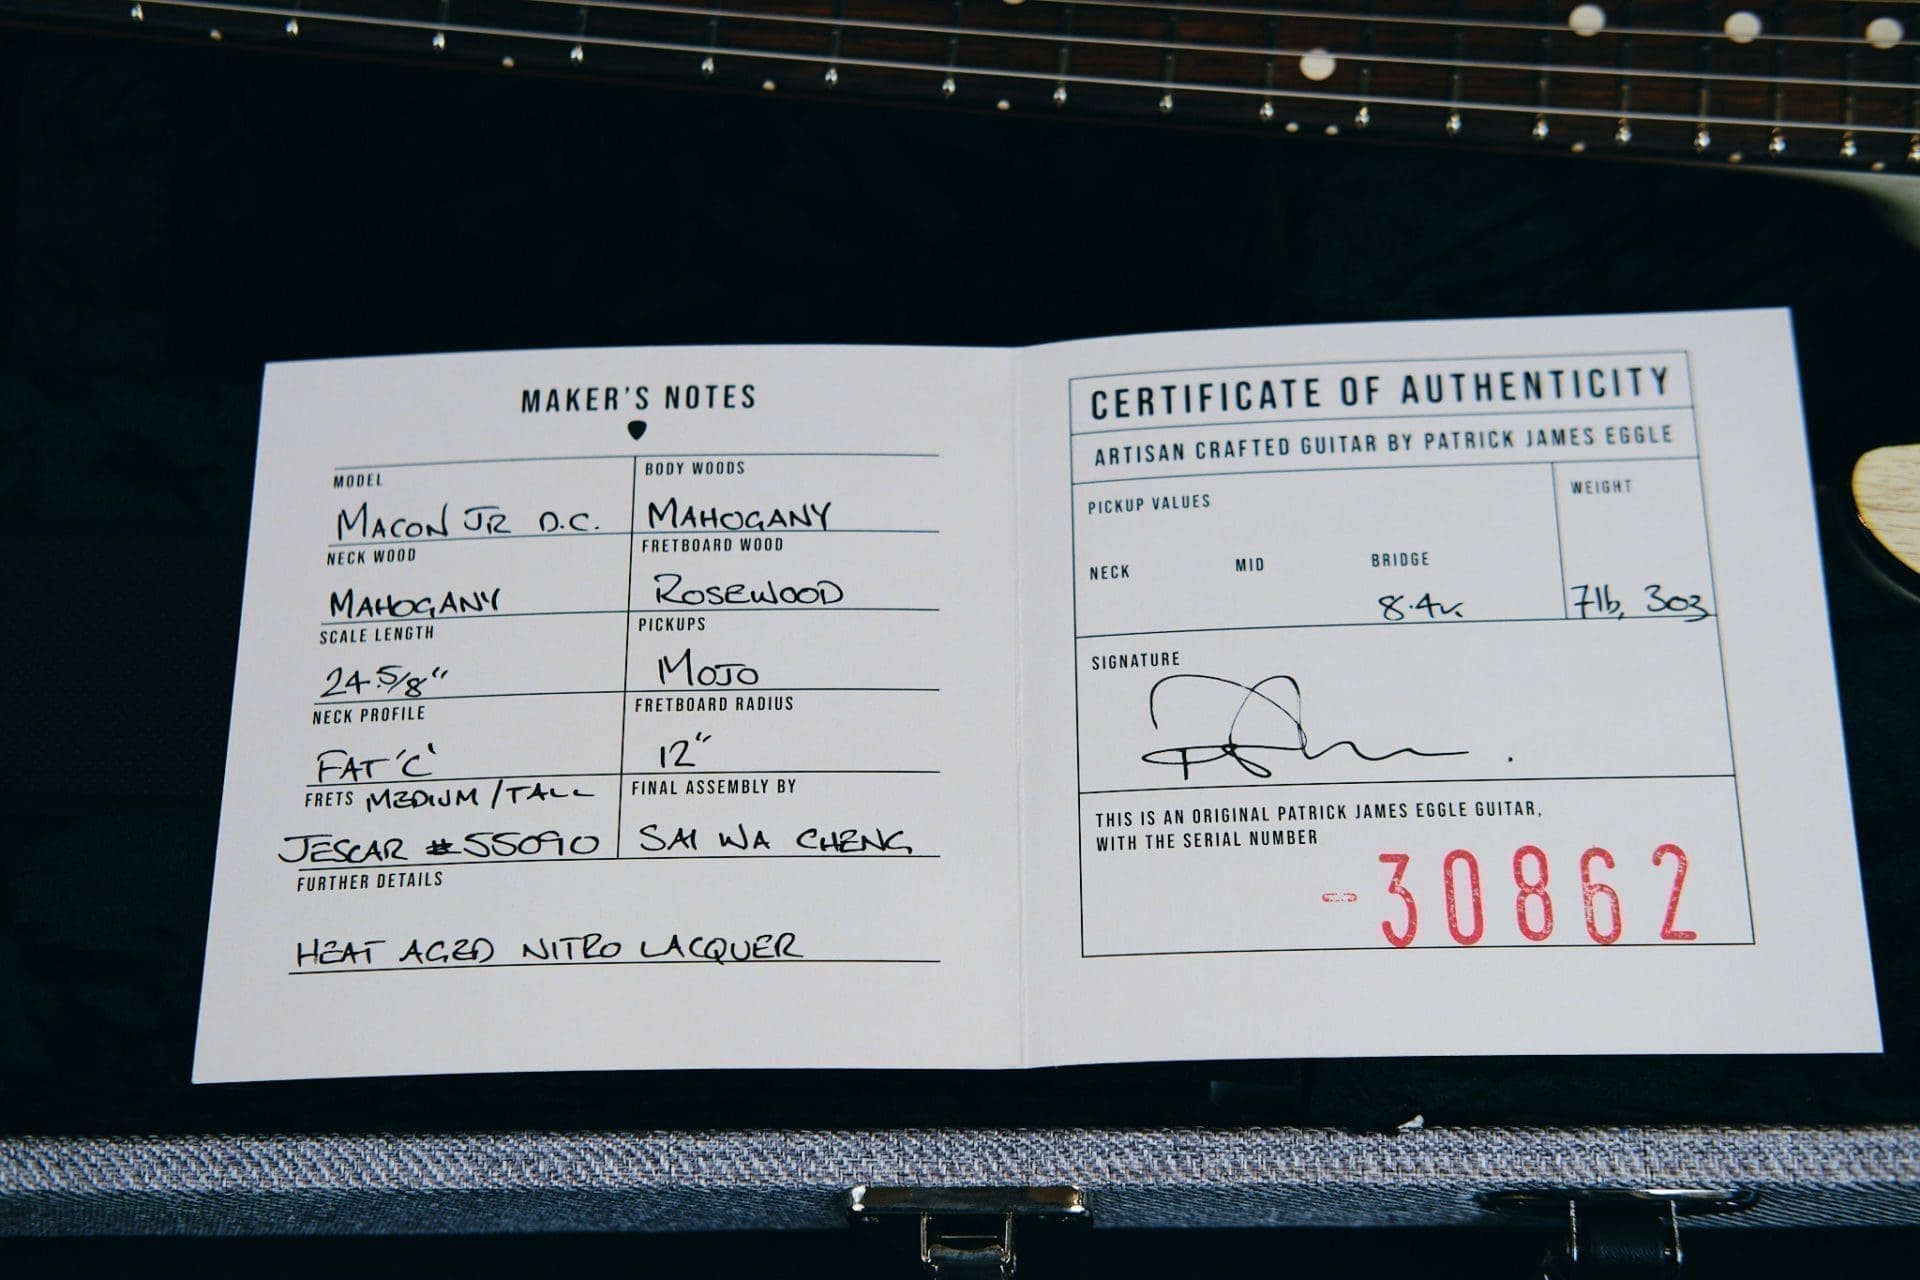 MAKER'S NOTES
MODEL
MACON JR D.C.
BODY WOODS
MAHOGANY
NECK WOOD
MAHOGANY
FRETBOARD WOOD
ROSEWOOD
SCALE LENGTH
24.5/8"
PICKUPS
MOJO
NECK PROFILE
FAT 'C'
FRETBOARD RADIUS
12"
FRETS MEDIUM/TALL
JESCAR #55090
FINAL ASSEMBLY BY
SAI WA CHENG
FURTHER DETAILS
HEAT AGED NITRO LACQUER
CERTIFICATE OF AUTHENTICITY
ARTISAN CRAFTED GUITAR BY PATRICK JAMES EGGLE
PICKUP VALUES
NECK MID BRIDGE
8.4K
WEIGHT
7lb, 3oz
SIGNATURE
THIS IS AN ORIGINAL PATRICK JAMES EGGLE GUITAR,
WITH THE SERIAL NUMBER
-30862